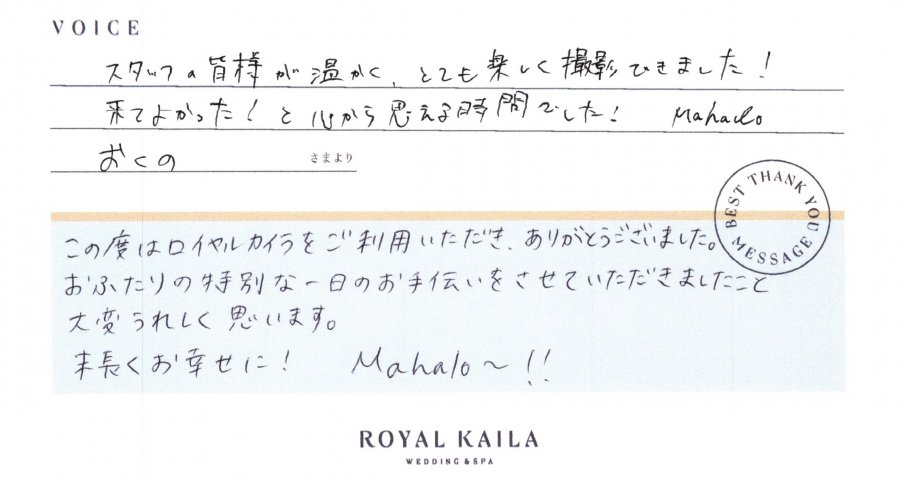 VOICE
スタッフの皆様が温かく、とても楽しく撮影できました！
来てよかった！と心から思える時間でした！ Mahalo
おくの さまより
BEST THANK YOU MESSAGE
この度はロイヤルカイラをご利用いただき、ありがとうございました。
おふたりの特別な一日のお手伝いをさせていただきましたこと
大変うれしく思います。
末長くお幸せに！ Mahalo〜!!
ROYAL KAILA
WEDDING & SPA